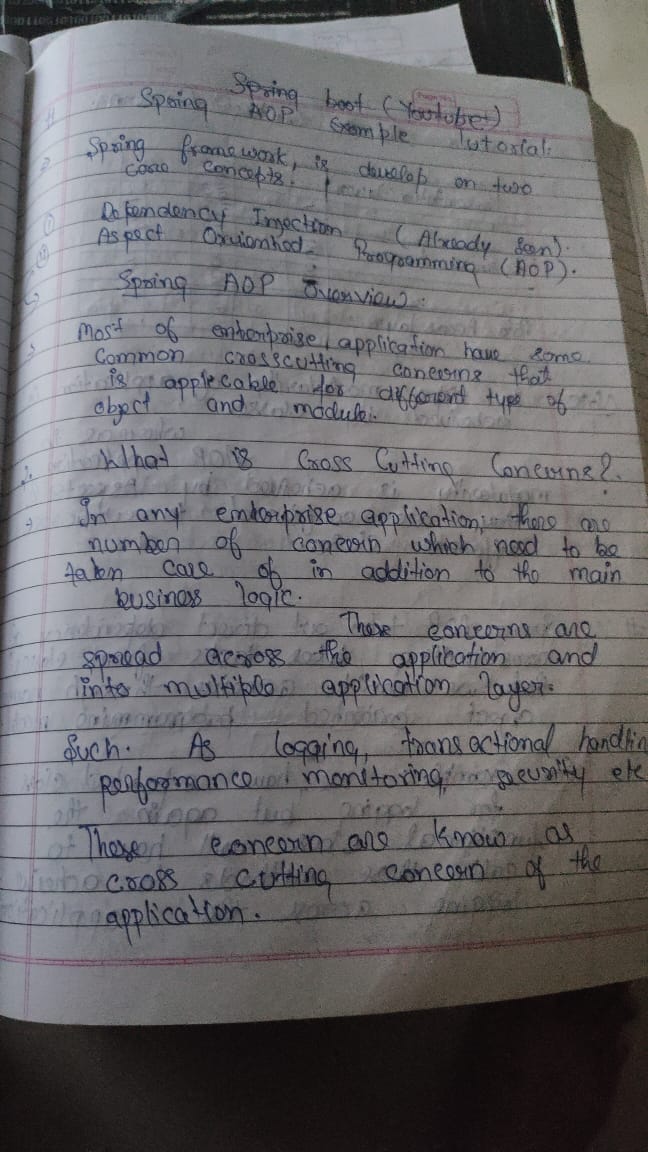 Spring boot (Youtube)
Spring AOP Example Tutorial.
Spring framework, is develop on two
core concepts.
① Dependency Injection (Already Seen).
② Aspect Oriented Programming (AOP).
Spring AOP Overview:
Most of enterprise application have some
common crosscutting concerns that
is applecable for different type of
object and module.
What is Cross Cutting Concerns?
In any enterprise application, there are
number of concern which need to be
taken care of in addition to the main
business logic.
These concerns are
spread across the application and
into multiple application layer.
Such. As logging, transactional handlin
performance monitoring, security etc
These concern are know as
cross cutting concern of the
application.